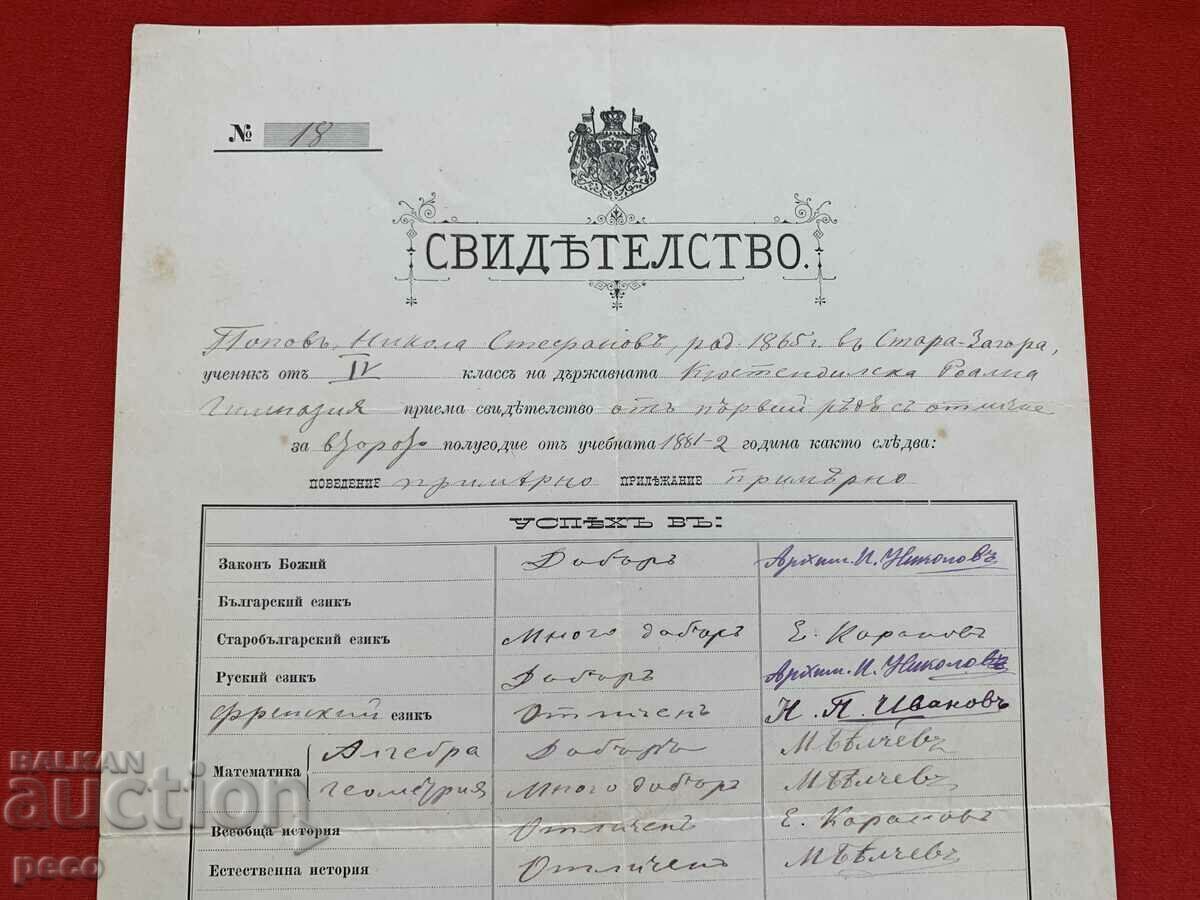 № 18
СВИДѢТЕЛСТВО.
Поповъ, Никола Стефановъ, род. 1865 г. въ Стара-Загора,
ученикъ отъ IV классъ на държавната Кюстендилска Реална
Гимназия приема свидѣтелство отъ първий рѣдъ съ отличие
за второ полугодие отъ учебната 1881-2 година както слѣдва:
ПОВЕДЕНИЕ примѣрно ПРИЛѢЖАНИЕ примѣрно
УСПѢХЪ ВЪ:
Законъ Божий Добъръ Архим. И. Николовъ
Българский езикъ
Старобългарский езикъ Много добъръ Е. Карановъ
Руский езикъ Добъръ Архим. И. Николовъ
Френский езикъ Отличенъ Н. П. Ивановъ
Математика Алгебра Добъръ
Геометрия Много добъръ
Всеобща история Отличенъ Е. Карановъ
Естественна история Отличенъ
BALKAN
auction
peco